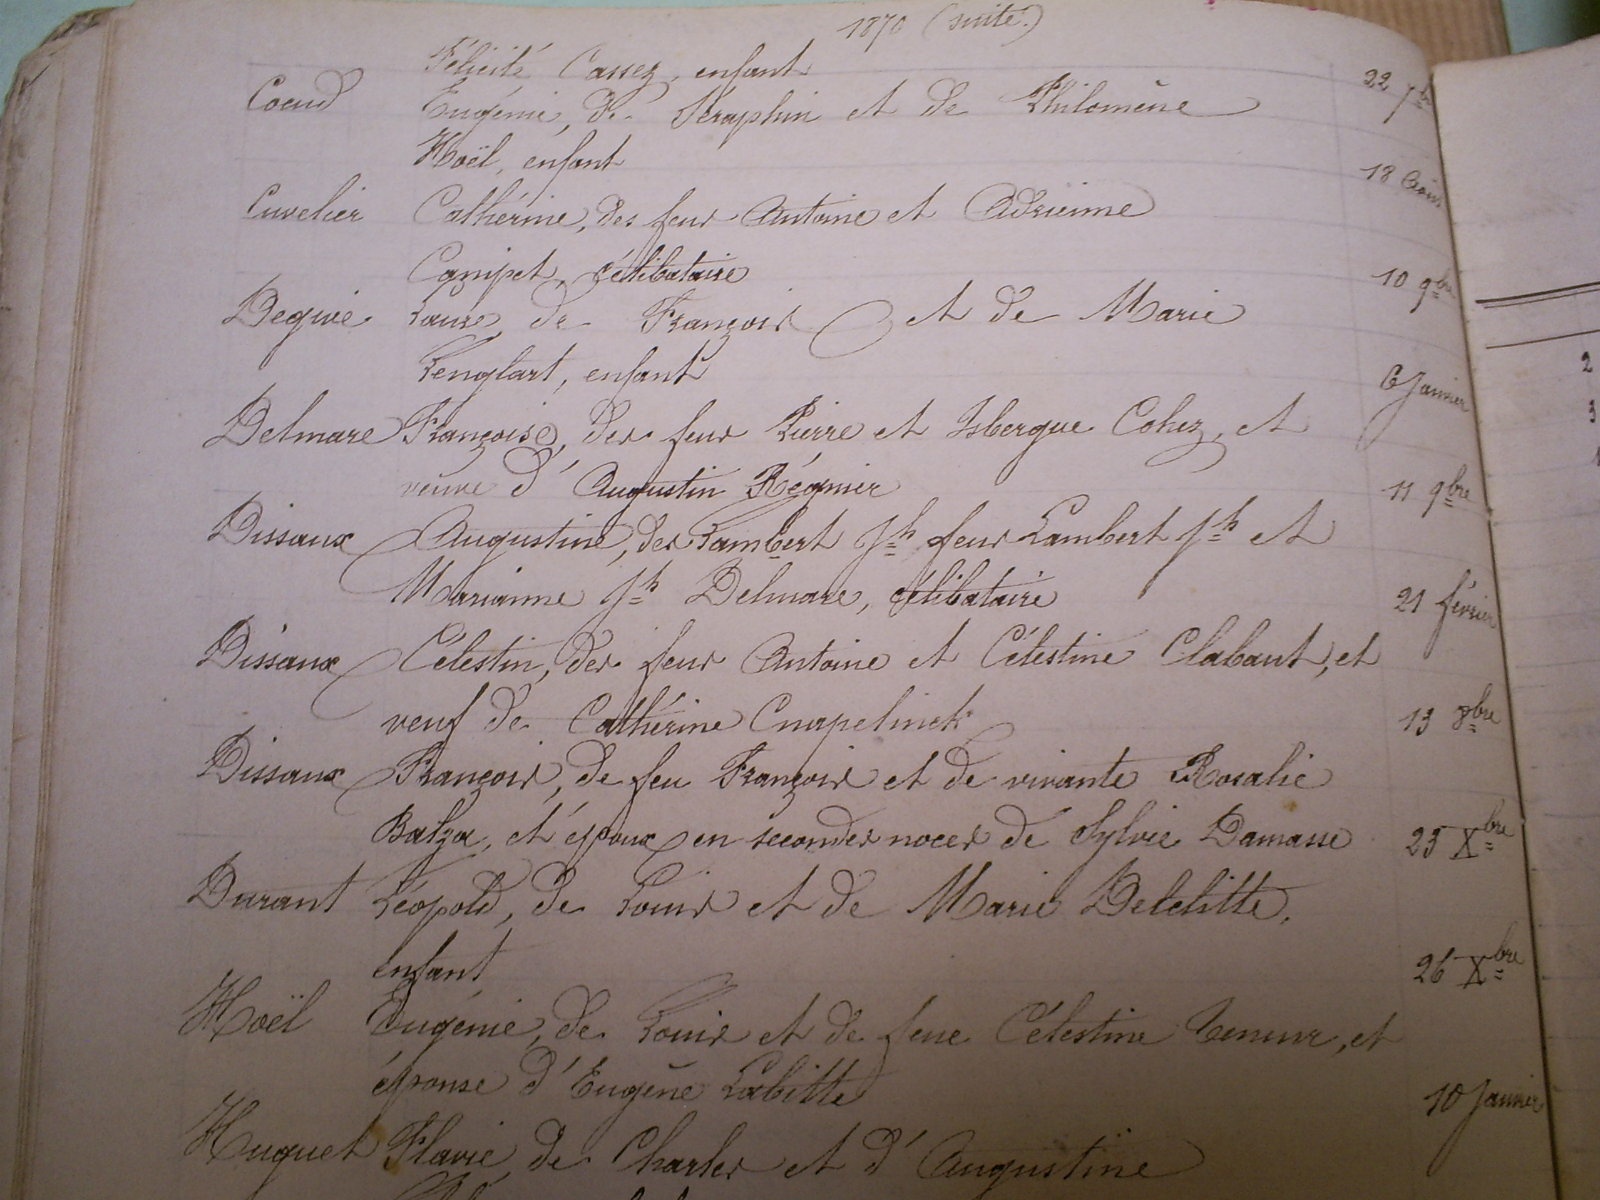 1870 (suite.)
Félicité Cassez, enfant
22 7bre
Coeud Eugénie, de Séraphin et de Philomène
Noël, enfant
18 Août
Cuvelier Cathérine, des feus Antoine et Adrienne
Campet, célibataire
10 9bre
Dequie Louise, de François et de Marie
Lenglart, enfant
6 Janvier
Delmare Françoise, des feus Pierre et Isbergue Cohez, et
veuve d'Augustin Régnier
11 9bre
Dissaux Augustine, des Lambert Jh feus Lambert Jh et
Marianne Jh Delmare, célibataire
21 février
Dissaux Célestin, des feus Antoine et Célestine Clabaut, et
veuf de Cathérine Cnapelinck
13 8bre
Dissaux François, de feu François et de vivante Rosalie
Balza, et époux en secondes noces de Sylvie Damasse
25 Xbre
Durant Léopold, de Louis et de Marie Delelitte,
enfant
26 Xbre
Noël Eugénie, de Louis et de feue Célestine et
épouse d'Eugène Labitte
10 Janvier
Huguet Flavie, de Charles et d'Augustine
2
3